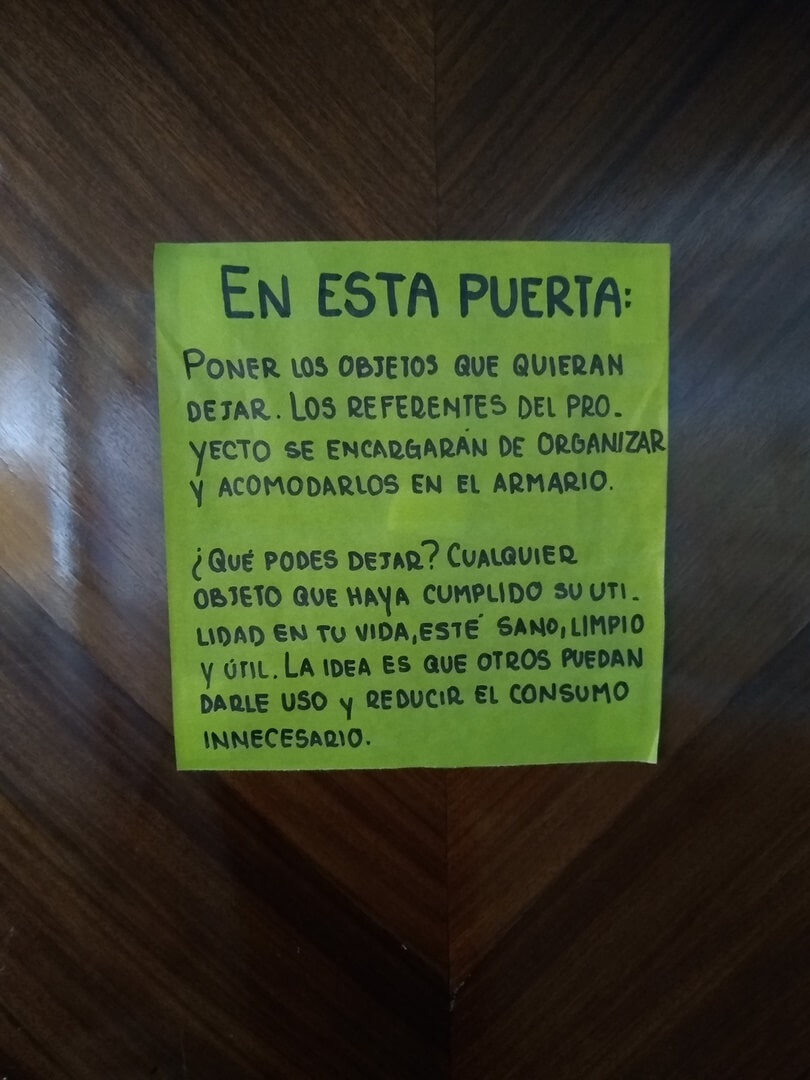 EN ESTA PUERTA:
PONER LOS OBJETOS QUE QUIERAN
DEJAR. LOS REFERENTES DEL PRO-
YECTO SE ENCARGARÁN DE ORGANIZAR
Y ACOMODARLOS EN EL ARMARIO.
¿QUÉ PODES DEJAR? CUALQUIER
OBJETO QUE HAYA CUMPLIDO SU UTI-
LIDAD EN TU VIDA, ESTÉ SANO, LIMPIO
Y ÚTIL. LA IDEA ES QUE OTROS PUEDAN
DARLE USO Y REDUCIR EL CONSUMO
INNECESARIO.